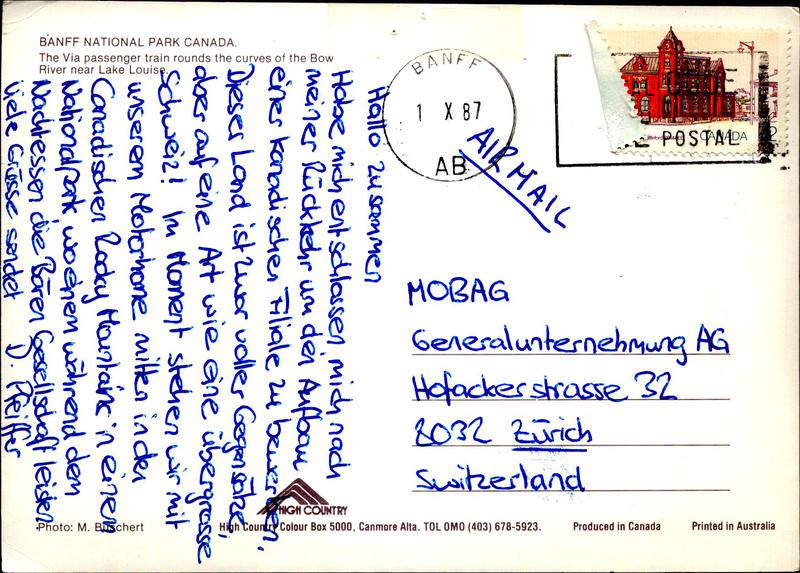 BANFF NATIONAL PARK CANADA.
The Via passenger train rounds the curves of the Bow
River near Lake Louise.
BANFF
1 X 87
AB
POSTAL
CANADA
AIRMAIL
Hallo zusammen
Habe mich entschlossen, mich nach
meiner Rückkehr um den Aufbau
einer kanadischen Filiale zu bewerben.
Dieser Land ist zwar voller Gegensätze,
aber auf eine Art wie eine übergrosse
Schweiz! Im Moment stehen wir mit
unserem Motorhome mitten in den
Canadischen Rocky Mountains in einem
Nationalpark, wo einem während dem
Nachtessen die Bären Gesellschaft leisten
Viele Grüsse sendet D. Pfeiffer
MOBAG
Generalunternehmung AG
Hofackerstrasse 32
8032 Zürich
Switzerland
HIGH COUNTRY
Photo: M. High Country Colour Box 5000, Canmore Alta. TOL OMO (403) 678-5923. Produced in Canada Printed in Australia